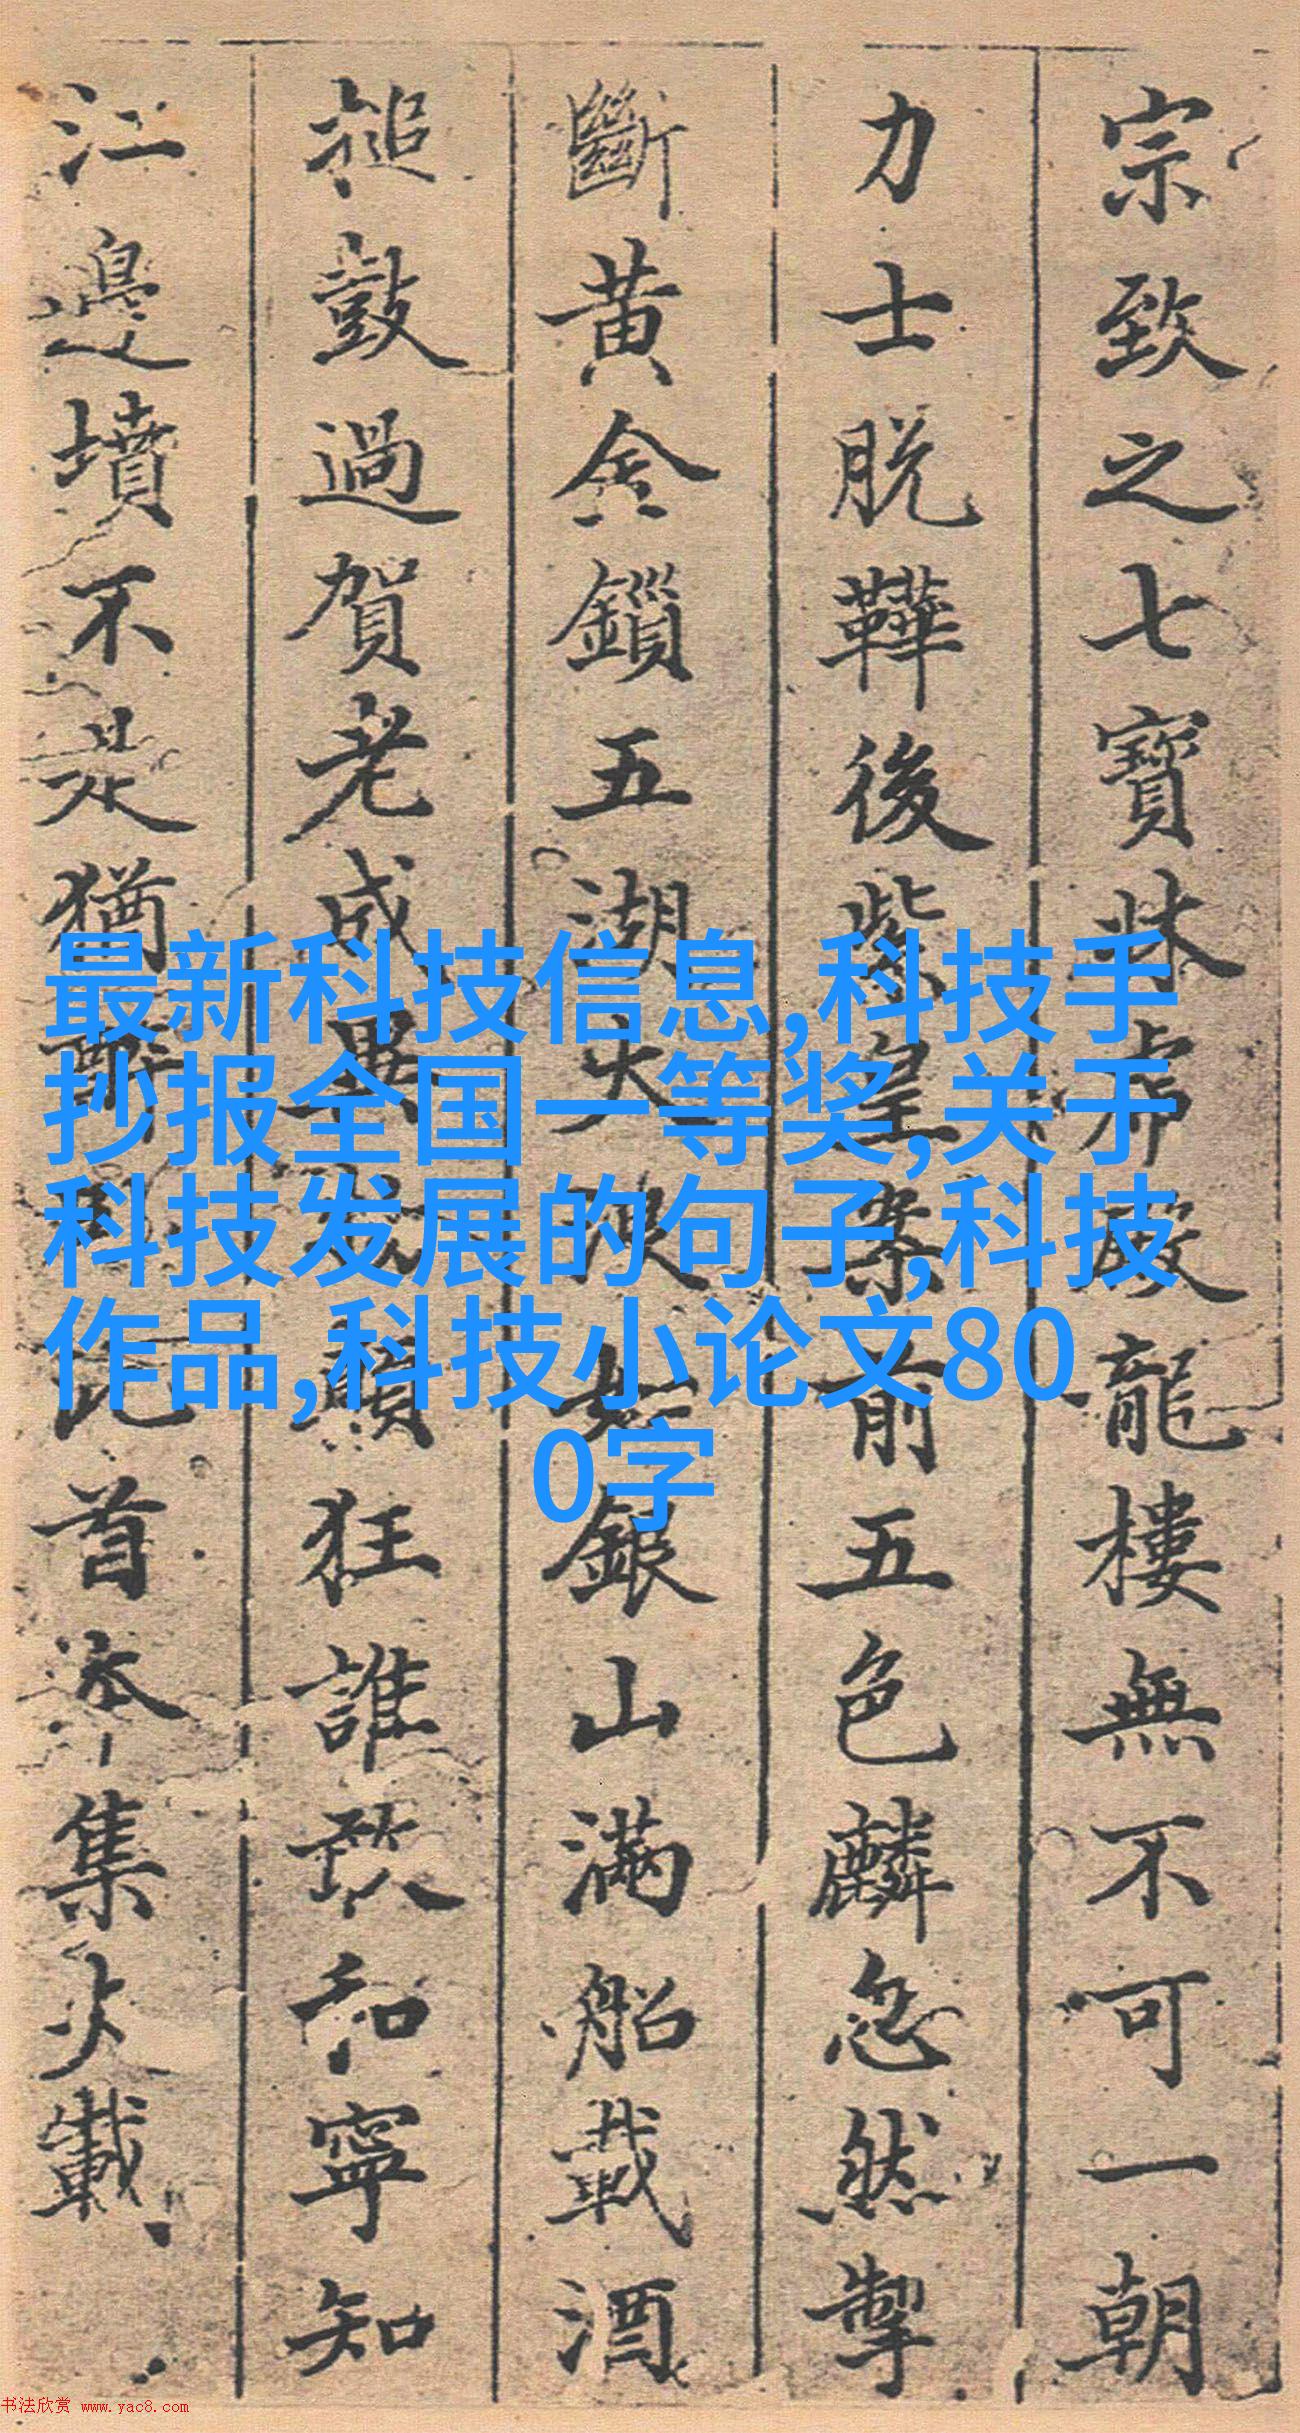 宗致之七寶牀虎殿龍樓無不可一朝
力士脫鞾後紫皇案前五色麟忽然掣
斷黃金鎖五湖大浪如銀山滿船載酒
搥鼓過賀老成異物顛狂誰敢和寧知
江邊墳不是猶醉此首本集火載
最新科技信息,科技手
抄报全国一等奖,关于
科技发展的句子,科技
作品,科技小论文80
0字
书法欣赏 www.yac8.com